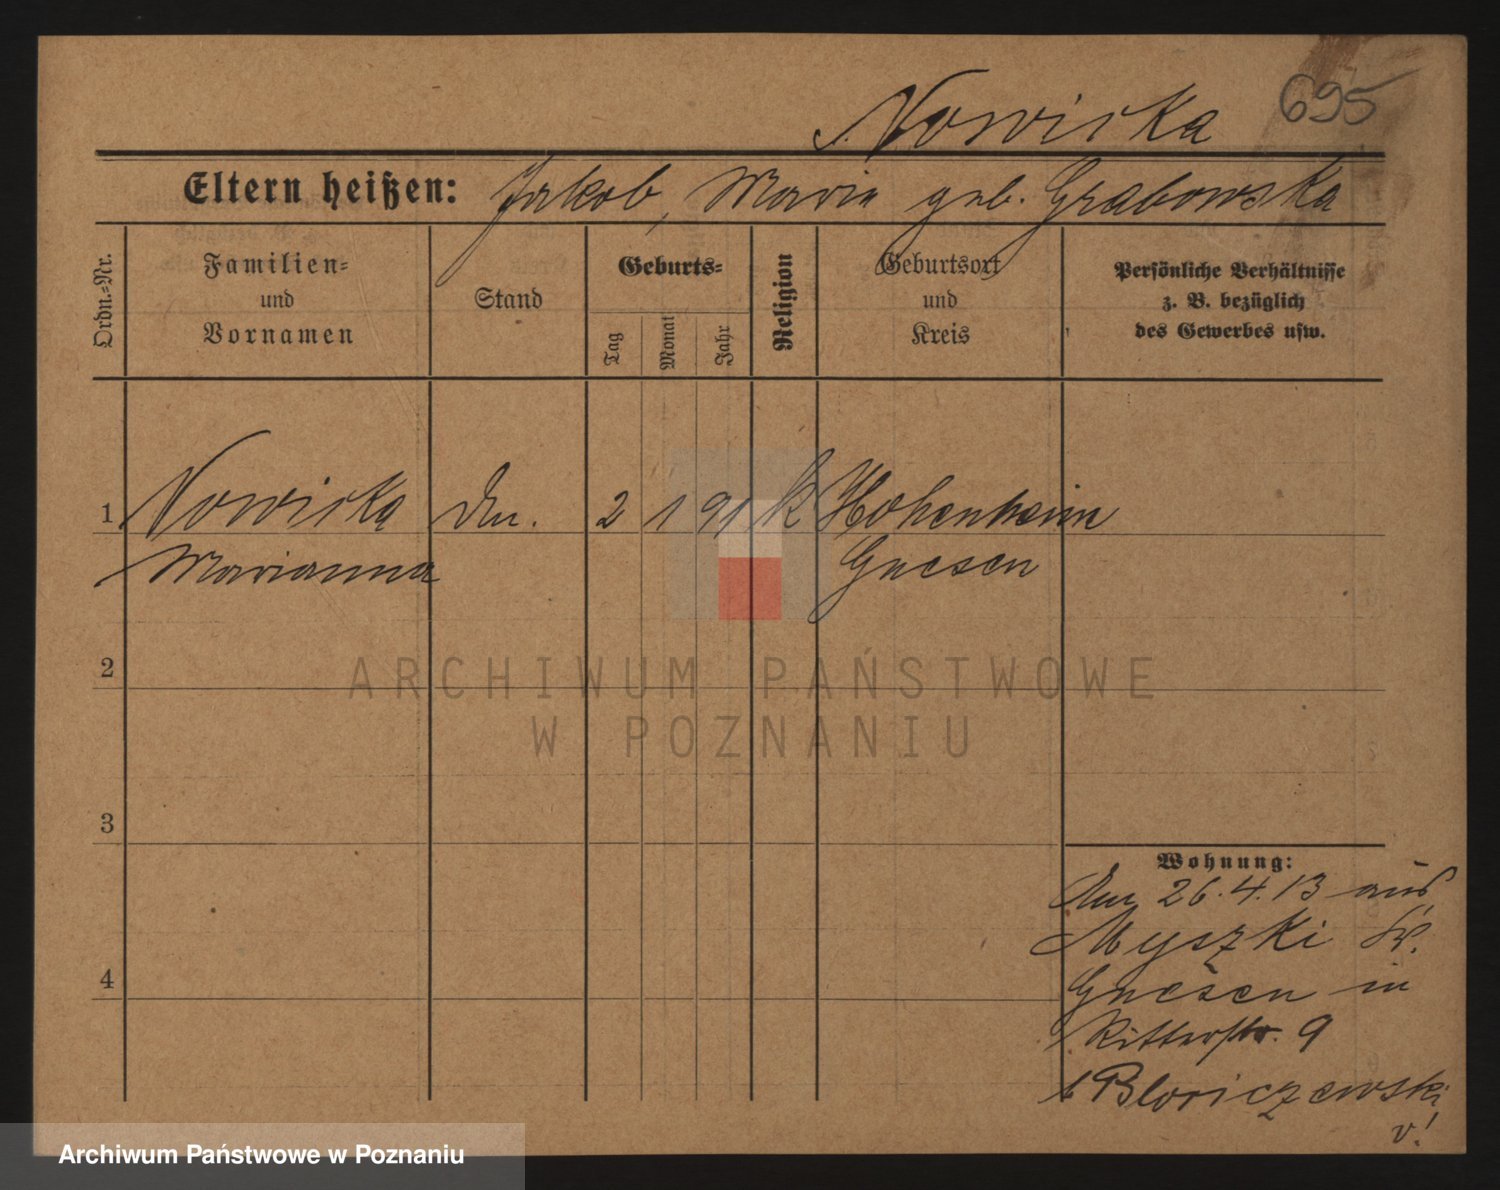 Nowicka 695
Eltern heißen: Jakob, Maria geb. Grabowska
Ordn.-Nr.
Familien-
und
Vornamen
Stand
Geburts-
Tag
Monat
Jahr
Religion
Geburtsort
und
Kreis
Persönliche Verhältnisse
z. B. bezüglich
des Gewerbes usw.
1 Nowicka 2 1 91 k Hohenheim
Marianna Gnesen
2
ARCHIWUM PAŃSTWOWE
W POZNANIU
3
4
Wohnung:
26.4.13 aus
Myszki Kr.
Gnesen in
Ritterstr. 9
b
v!
Archiwum Państwowe w Poznaniu